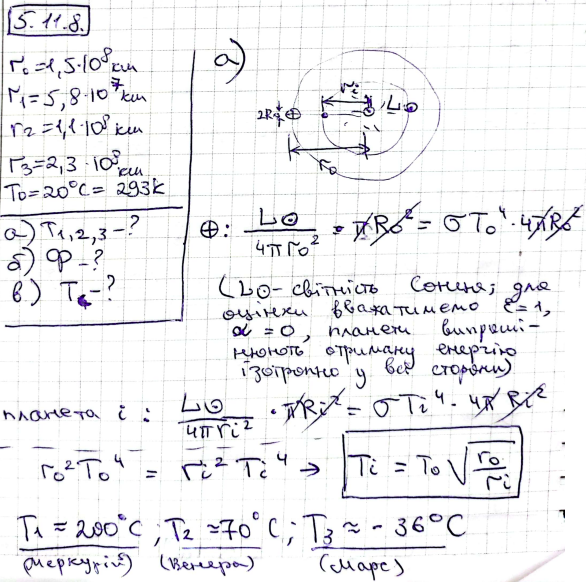 5.11.8.
r₀=1,5·10⁸ км
r₁=5,8·10⁷ км
r₂=1,1·10⁸ км
r₃=2,3·10⁸ км
T₀=20°C=293K
а) T₁,₂,₃-?
б) Ф-?
в) T-?
а)
rᵢ L⊙
2R ⊕
r₀
⊕: L⊙/4πr₀² · πR₀² = σT₀⁴·4πR₀²
(L⊙-світність Сонця; для
оцінки вважатимемо ε=1,
α=0, планети випромі-
нюють отриману енергію
ізотропно у всі сторони)
планета i: L⊙/4πrᵢ² · πRᵢ² = σTᵢ⁴·4πRᵢ²
r₀²T₀⁴ = rᵢ²Tᵢ⁴ → Tᵢ = T₀√(r₀/rᵢ)
T₁≈200°C; T₂≈70°C; T₃≈-36°C
(Меркурій) (Венера) (Марс)